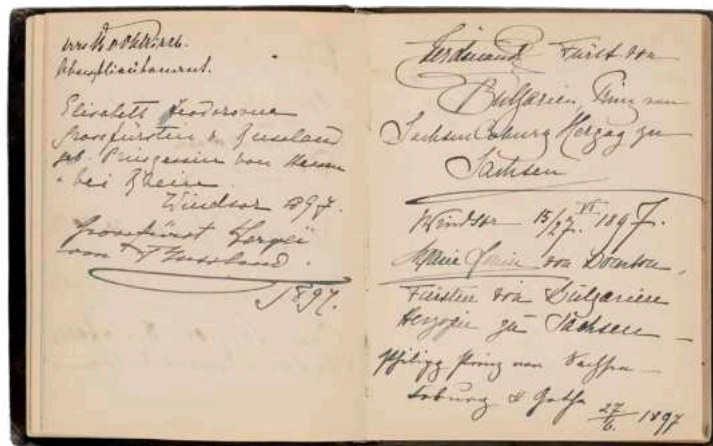 Elisabeth Feodorowna
Grossfürstin v. Russland
geb. Prinzessin von Hessen
u. bei Rhein
Windsor 1897.
Grossfürst Sergei
von Russland.
1897.
Ferdinand Fürst von
Bulgarien, Prinz von
Sachsen Coburg Herzog zu
Sachsen
Windsor 15/27. VI. 1897.
Marie Louise von Bourbon,
Fürstin von Bulgarien
Herzogin zu Sachsen —
Philipp Prinz von Sachsen —
Coburg & Gotha 27/6. 1897